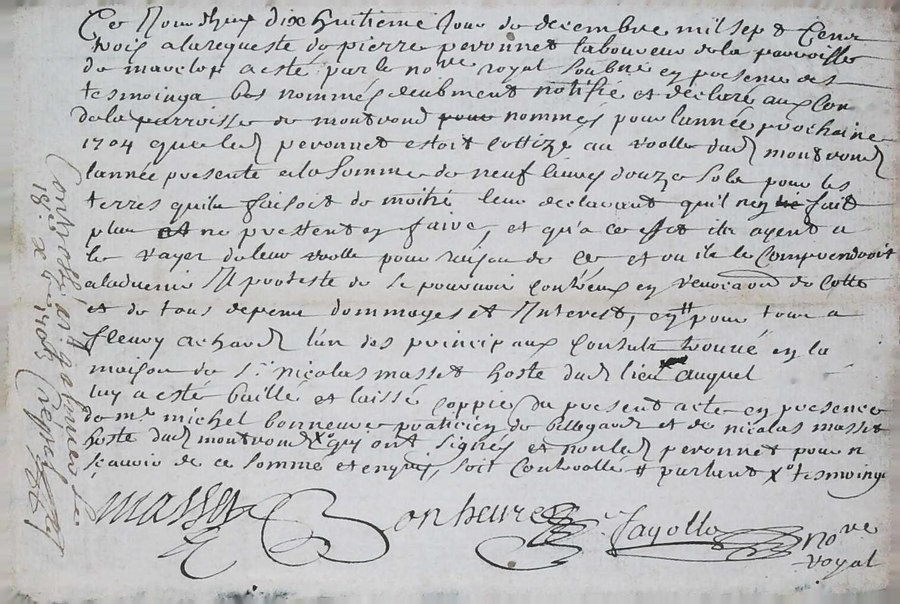 Ce Jourdhuy dixhuitieme Jour de decembre mil sept Cent
trois a la requeste de pierre peronnet laboureur de la parroisse
de maselop a esté par le nore royal soubné en presence des
tesmoings bas nommés deubment notiffié et declaré aux Con
de la parroisse de montrond nommés pour l'année prochaine
1704 que led peronnet estoit cottizé au roolle dud montrond
l'année presente a la somme de neuf livres douze sols pour les
terres qu'il faisoit de moitié leur declarant qu'il n'en fait
plus ne pretent en faire, et qu'a ce effet ils ayent a
le rayer de leur roolle pour raison de ce et ou ils le Comprendroit
a ladvenir Il proteste de se pourvoir contreux en de cotte
et de tous depens dommages et Interest, en pour tous a
fleury achard l'un des principaux Consuls trouvé en la
maison de Sr nicolas masset hoste dud lieu auquel
luy a esté baillé et laissé coppie du present acte en presence
de me michel bonheure praticien de bellegarde et de nicolas masset
hoste dud montrond qui ont signés et non led peronnet pour n
scavoir de ce sommé et enquis, soit Controllé parlant tesmoings
masset Bonheure Fayolle nore
royal
Controllé a le
18e Xbre 1703